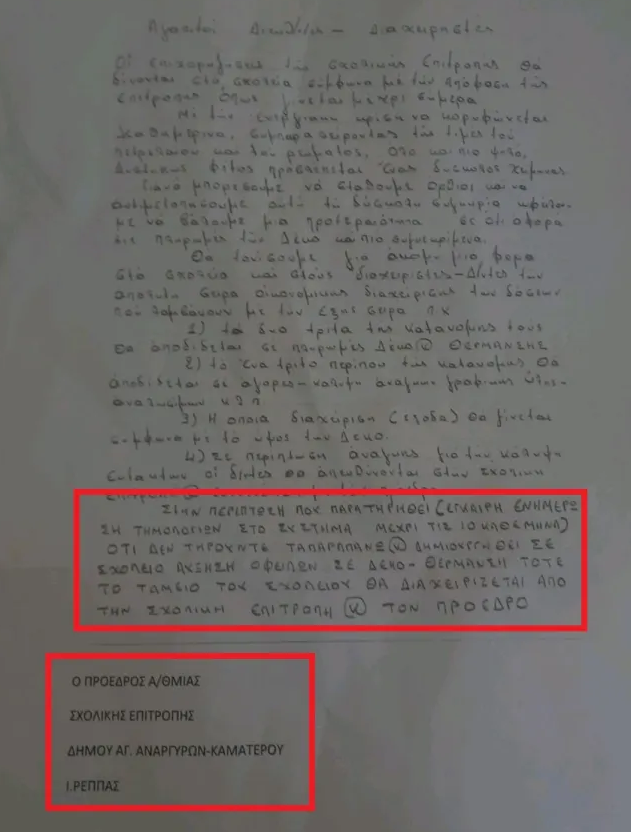 Αγαπητοί Διευθ/ντες - Διαχειρηστες
Οι επιχορηγησεις της σχολικής Επιτροπης θα
δινονται στα σχολεία σύμφωνα με την απόφαση της
επιτροπης όπως γινεται μεχρι σημερα.
Με την Ενεργιακη κριση να κορυφώνεται
καθημερινα, συμπαρασειροντας τις τιμες του
πετρελαιου και του ρευματος, στο και πιο ψηλα,
Φετος προσπεται ενας δυσκολος χειμωνας
Για να μπορεσουμε να σταθουμε ορθιοι και να
αντιμετοπισουμε αυτη τη δύσκολη συγκυρια
με να βάλουμε μια προτεραιότητα σε οτι αφορα
στις πληρωμες των Δεκο και πιο συγκεκριμενα.
Θα τονισουμε για ακομη μια φορα
στα σχολεία και στους διαχειριστες-Δ/ντες των
σειρα οικονομικης διαχειρισης των δόσεων
που λαμβανουν με την εξης σειρα π.χ
1) τα δυο τριτα της κατανομης τους
θα αποδιδεται σε πληρωμές Δεκο κ ΘΕΡΜΑΝΣΗΣ
2) το ένα τριτο περιπου της κατανομης θα
αποδιδεται σε αγορες-καλυψη αναγκων γραφικης ύλης-
αναλωσιμων κ λ π
3) Η οποια διαχείριση (εξοδα) θα γίνεται
συμφωνα με το υψος των Δεκο.
4) Σε περιπτωση αναγκης για την καλυψη
εκτακτων οι δ/ντες θα απευθύνονται στην σχολικη
ΣΤΗΝ ΠΕΡΙΠΤΩΣΗ ΠΟΥ ΠΑΡΑΤΗΡΗΘΕΙ (ΕΓΚΑΙΡΗ ΕΝΗΜΕΡΩ
ΣΗ ΤΗΜΟΛΟΓΙΩΝ ΣΤΟ ΣΥΣΤΗΜΑ ΜΕΧΡΙ ΤΙΣ 10 ΚΑΘΕ ΜΗΝΑ)
ΟΤΙ ΔΕΝ ΤΗΡΟΥΝΤΕ ΤΑ ΠΑΡΑΠΑΝΩ κ ΔΗΜΙΟΥΡΓΗΘΕΙ ΣΕ
ΣΧΟΛΕΙΟ ΑΥΞΗΣΗ ΟΦΕΙΛΩΝ ΣΕ ΔΕΚΟ-ΘΕΡΜΑΝΣΗ ΤΟΤΕ
ΤΟ ΤΑΜΕΙΟ ΤΟΥ ΣΧΟΛΕΙΟΥ ΘΑ ΔΙΑΧΕΙΡΙΖΕΤΑΙ ΑΠΟ
ΤΗΝ ΣΧΟΛΙΚΗ ΕΠΙΤΡΟΠΗ κ ΤΟΝ ΠΡΟΕΔΡΟ
Ο ΠΡΟΕΔΡΟΣ Α/ΘΜΙΑΣ
ΣΧΟΛΙΚΗΣ ΕΠΙΤΡΟΠΗΣ
ΔΗΜΟΥ ΑΓ. ΑΝΑΡΓΥΡΩΝ-ΚΑΜΑΤΕΡΟΥ
Ι.ΡΕΠΠΑΣ